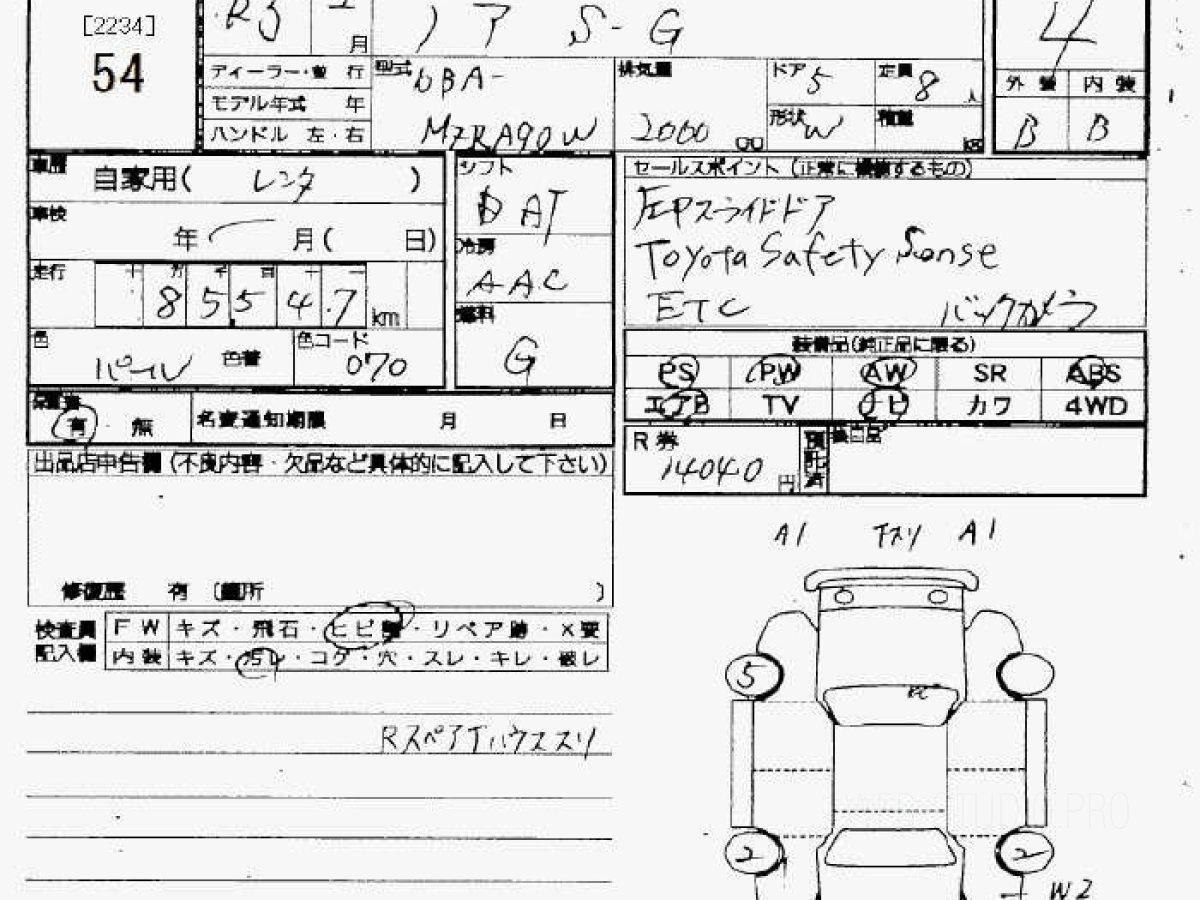 [2234]
54
R3
月
ノア S-G
4
ディーラー・並行
モデル年式 年
ハンドル 左・右
型式 DBA-
MZRA90W
排気量
2000
ドア 5
定員 8 人
形状 W
積載
外装 内装
B B
車歴
自家用( レンタ )
車検
年 月( 日)
走行
十 万 千 百 十 一
8 5 5 4 7 km
色
パール 色替
色コード
070
シフト
AT
冷房
AAC
燃料
G
セールスポイント(正常に機能するもの)
圧Pスライドドア
Toyota Safety Sense
ETC バックカメラ
装備品(純正品に限る)
PS PW AW SR ABS
エアB TV ナビ カワ 4WD
保証書
有・無
名変通知期限 月 日
R券
14040 円
預託済
出品店申告欄(不良内容・欠品など具体的に記入して下さい)
修復歴 有〔箇所 〕
検査員
記入欄
FW キズ・飛石・ヒビ割・リペア跡・X要
内装 キズ・汚レ・コゲ・穴・スレ・キレ・破レ
RスペアTハウススリ
A1 下スリ A1
5
2 2
W2